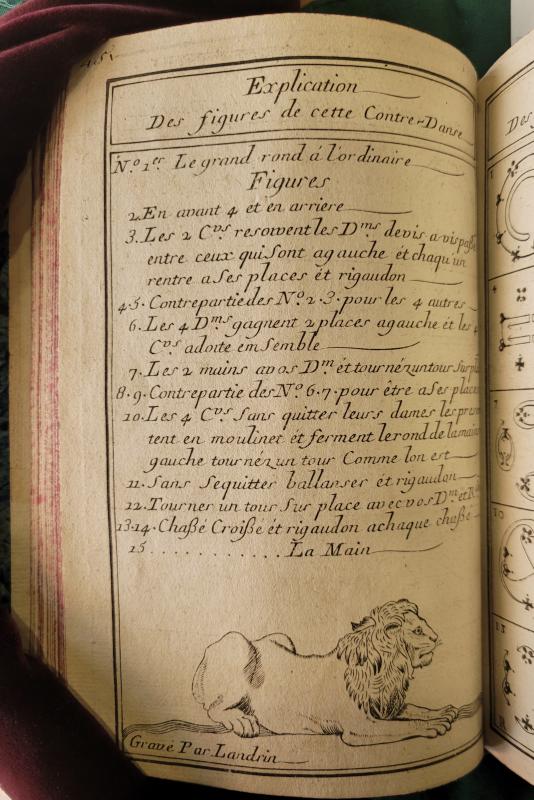 45.
Explication
Des figures de cette Contre-Danse
N.º 1.er Le grand rond á l'ordinaire
Figures
2. En avant 4 et en arriere
3. Les 2 C.vs resowent les D.ms devis avis passe
entre ceux qui sont agauche ét chaqu'un
rentre a ses places ét rigaudon
4.5. Contrepartie des N.º 2.3. pour les 4 autres
6. Les 4 D.ms gagnent 2 places agauche ét les 4
C.vs adoite emsemble
7. Les 2 mains avos D.m ét tournéz un tour sur
8.9. Contrepartie des N.º 6.7. pour être a ses places
10. Les 4 C.vs sans quitter leurs dames les presen
tent en moulinet ét ferment le rond de la main
gauche tournéz un tour Comme lon est
11. Sans sequitter ballanser ét rigaudon
12. Tourner un tour sur place avec vos D.m et
13.14. Chaßé Croißé ét rigaudon achaque chaßé
15 ............ La Main
Gravé Par Landrin
Des
1
4
7
10
R